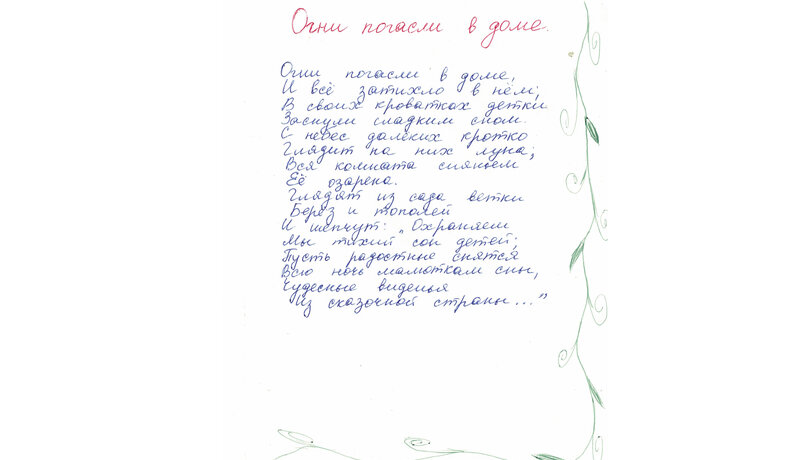 Огни погасли в доме.
Огни погасли в доме,
И всё затихло в нём;
В своих кроватках детки
Заснули сладким сном.
С небес далёких кротко
Глядит на них луна;
Вся комната сияньем
Её озарена.
Глядят из сада ветки
Берёз и тополей
И шепчут: „Охраняем
Мы тихий сон детей;
Пусть радостные снятся
Всю ночь малюткам сны,
Чудесные виденья
Из сказочной страны..."